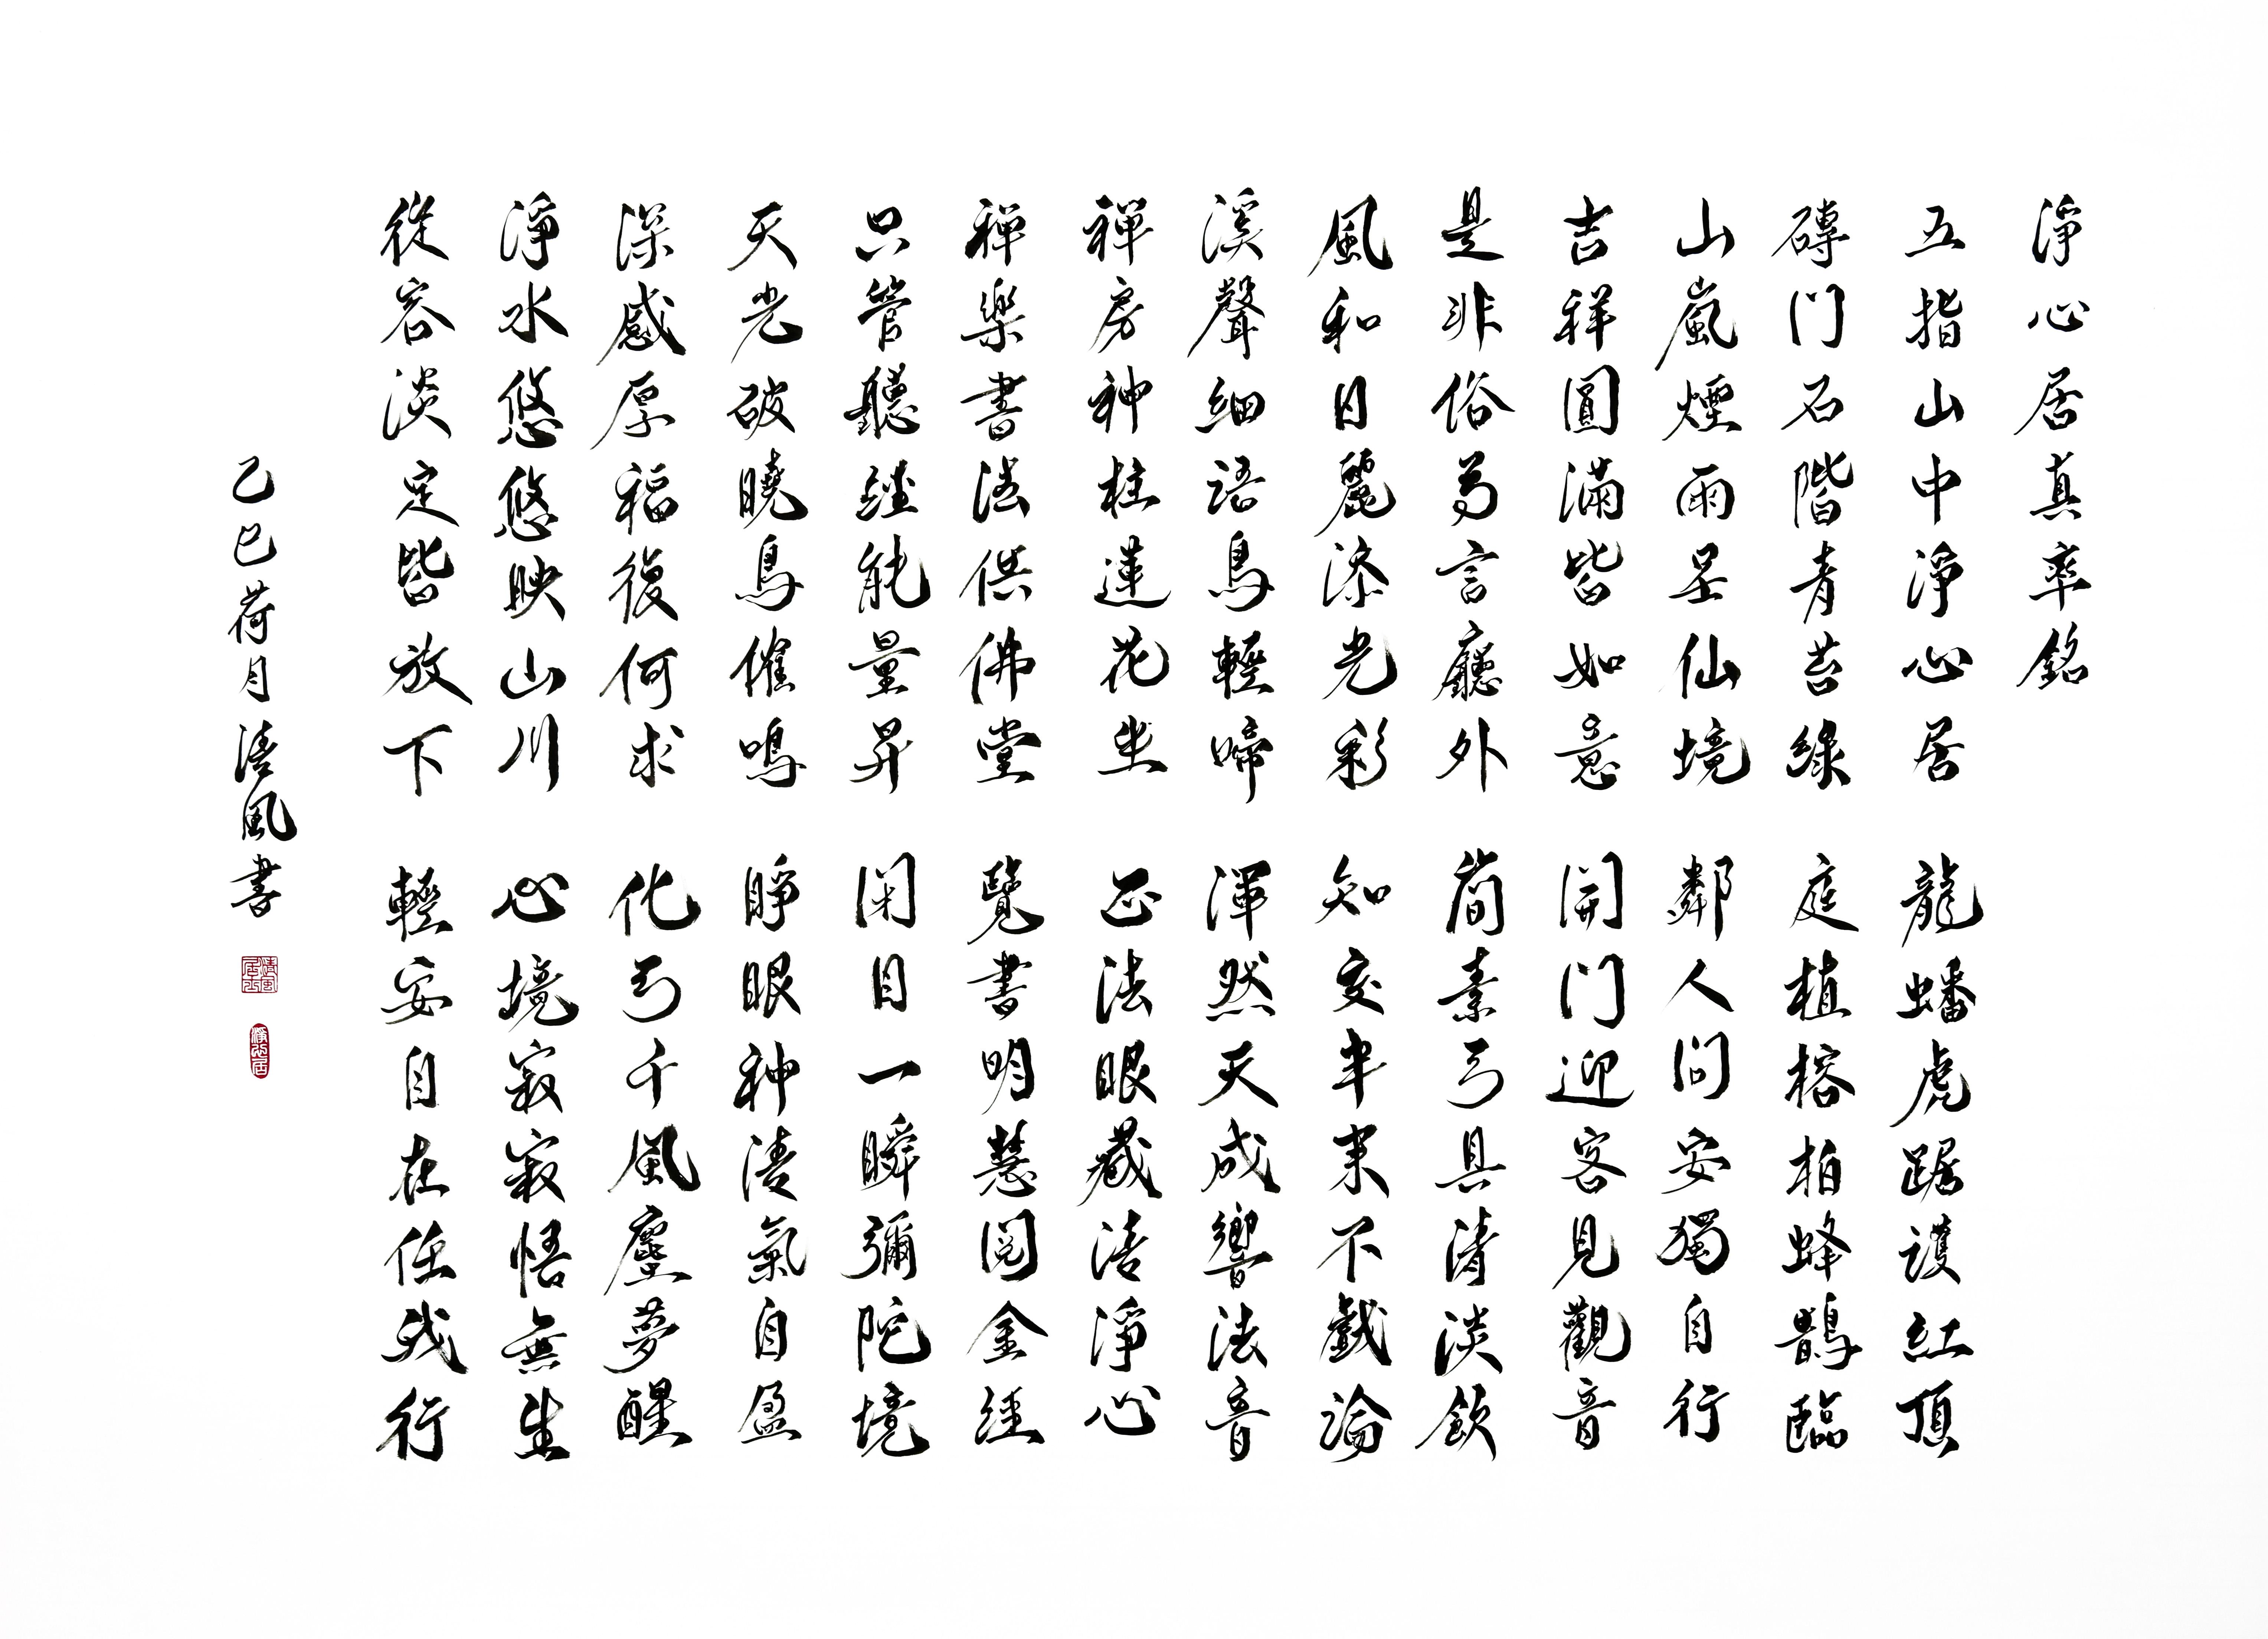 淨心居真率銘
五指山中淨心居 龍蟠虎踞護紅頂
磚門石階青苔綠 庭植榕柏蜂鵲臨
山嵐煙雨呈仙境 鄰人問安獨自行
吉祥圓滿皆如意 開門迎客見觀音
是非俗言廳外 簡素具清淡飲
風和日麗添光彩 知交半來不戲論
溪聲細語鳥輕啼 渾然天成響法音
禪房神柱蓮花坐 正法眼藏清淨心
禪樂書法供佛堂 覽書明慧閱金經
只管聽經能量昇 閉目一瞬彌陀境
天光破曉鳥催鳴 睜眼神清氣自盈
深感厚福復何求 化千風塵夢醒
淨水悠悠映山川 心境寂寂悟無生
從容淡定皆放下 輕安自在任我行
乙巳荷月清風書
清風居士
淨心居